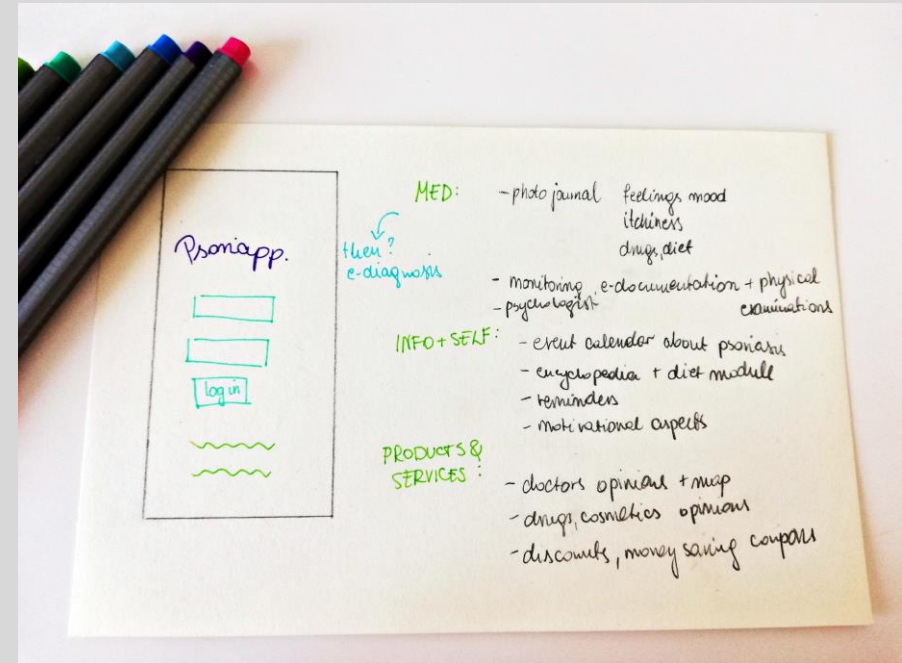 Psoriapp.
log in
then?
e-diagnosis
MED:
- photo journal feelings mood
itchiness
drugs, diet
- monitoring, e-documentation + physical
examinations
- psychologist
INFO + SELF:
- event calendar about psoriasis
- encyclopedia + diet module
- reminders
- motivational aspects
PRODUCTS &
SERVICES :
- doctors opinions + map
- drugs, cosmetics opinions
- discounts, money saving coupons